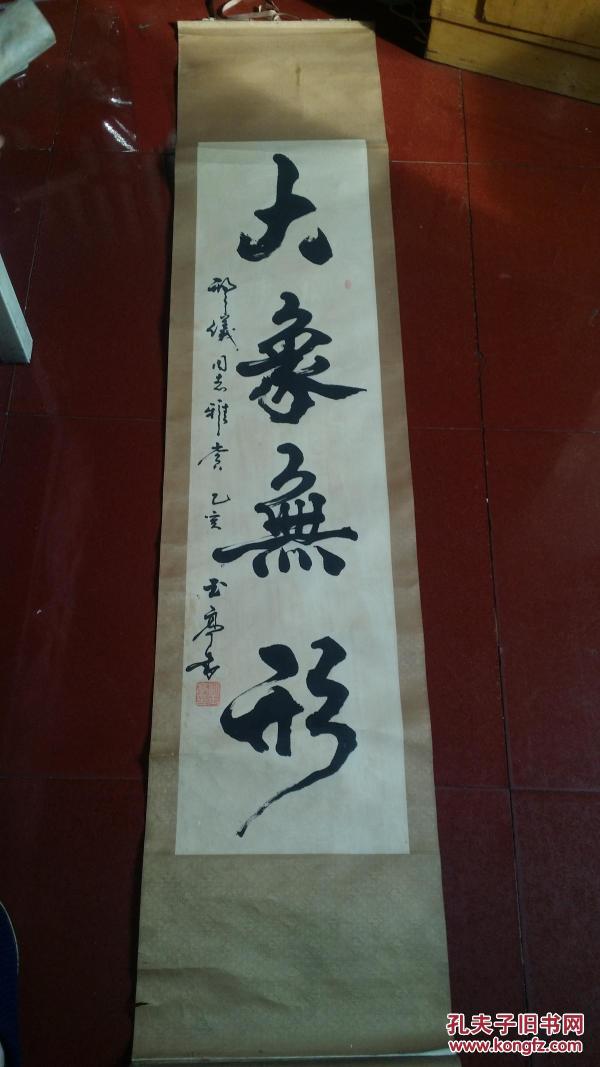 大象無形
儀同志雅賞 乙亥 玉亭書
孔夫子旧书网
www.kongfz.com